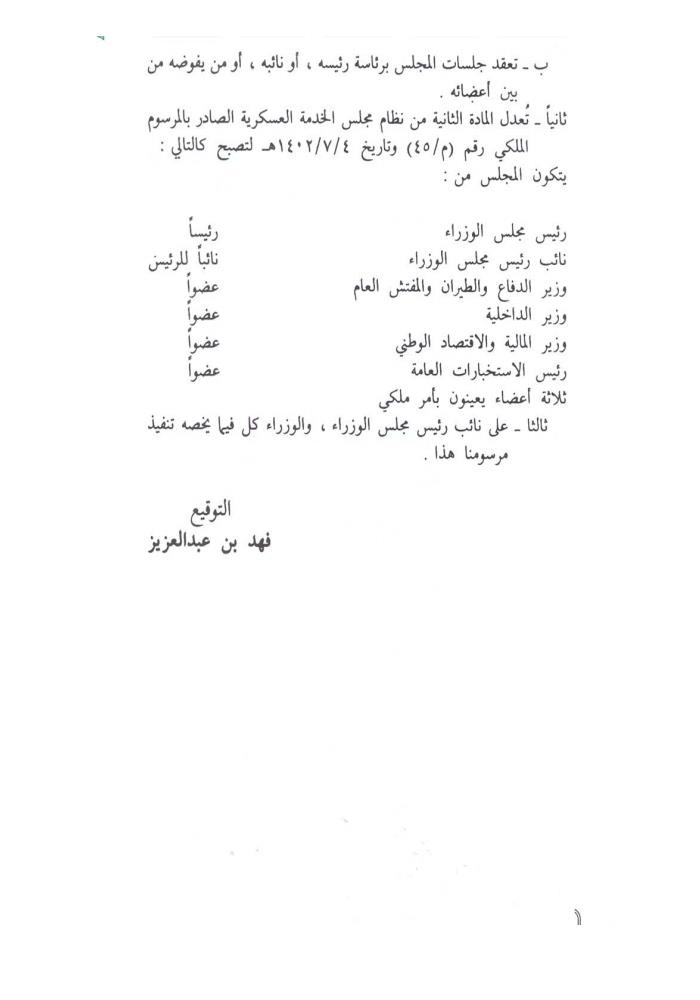 ب ـ تعقد جلسات المجلس برئاسة رئيسه ، أو نائبه ، أو من يفوضه من
بين أعضائه .
ثانياً ـ تُعدل المادة الثانية من نظام مجلس الخدمة العسكرية الصادر بالمرسوم
الملكي رقم (م/٤٥) وتاريخ ١٤٠٢/٧/٤هـ لتصبح كالتالي :
يتكون المجلس من :
رئيس مجلس الوزراء رئيساً
نائب رئيس مجلس الوزراء نائباً للرئيس
وزير الدفاع والطيران والمفتش العام عضواً
وزير الداخلية عضواً
وزير المالية والاقتصاد الوطني عضواً
رئيس الاستخبارات العامة عضواً
ثلاثة أعضاء يعينون بأمر ملكي
ثالثا ـ على نائب رئيس مجلس الوزراء ، والوزراء كل فيما يخصه تنفيذ
مرسومنا هذا .
التوقيع
فهد بن عبدالعزيز